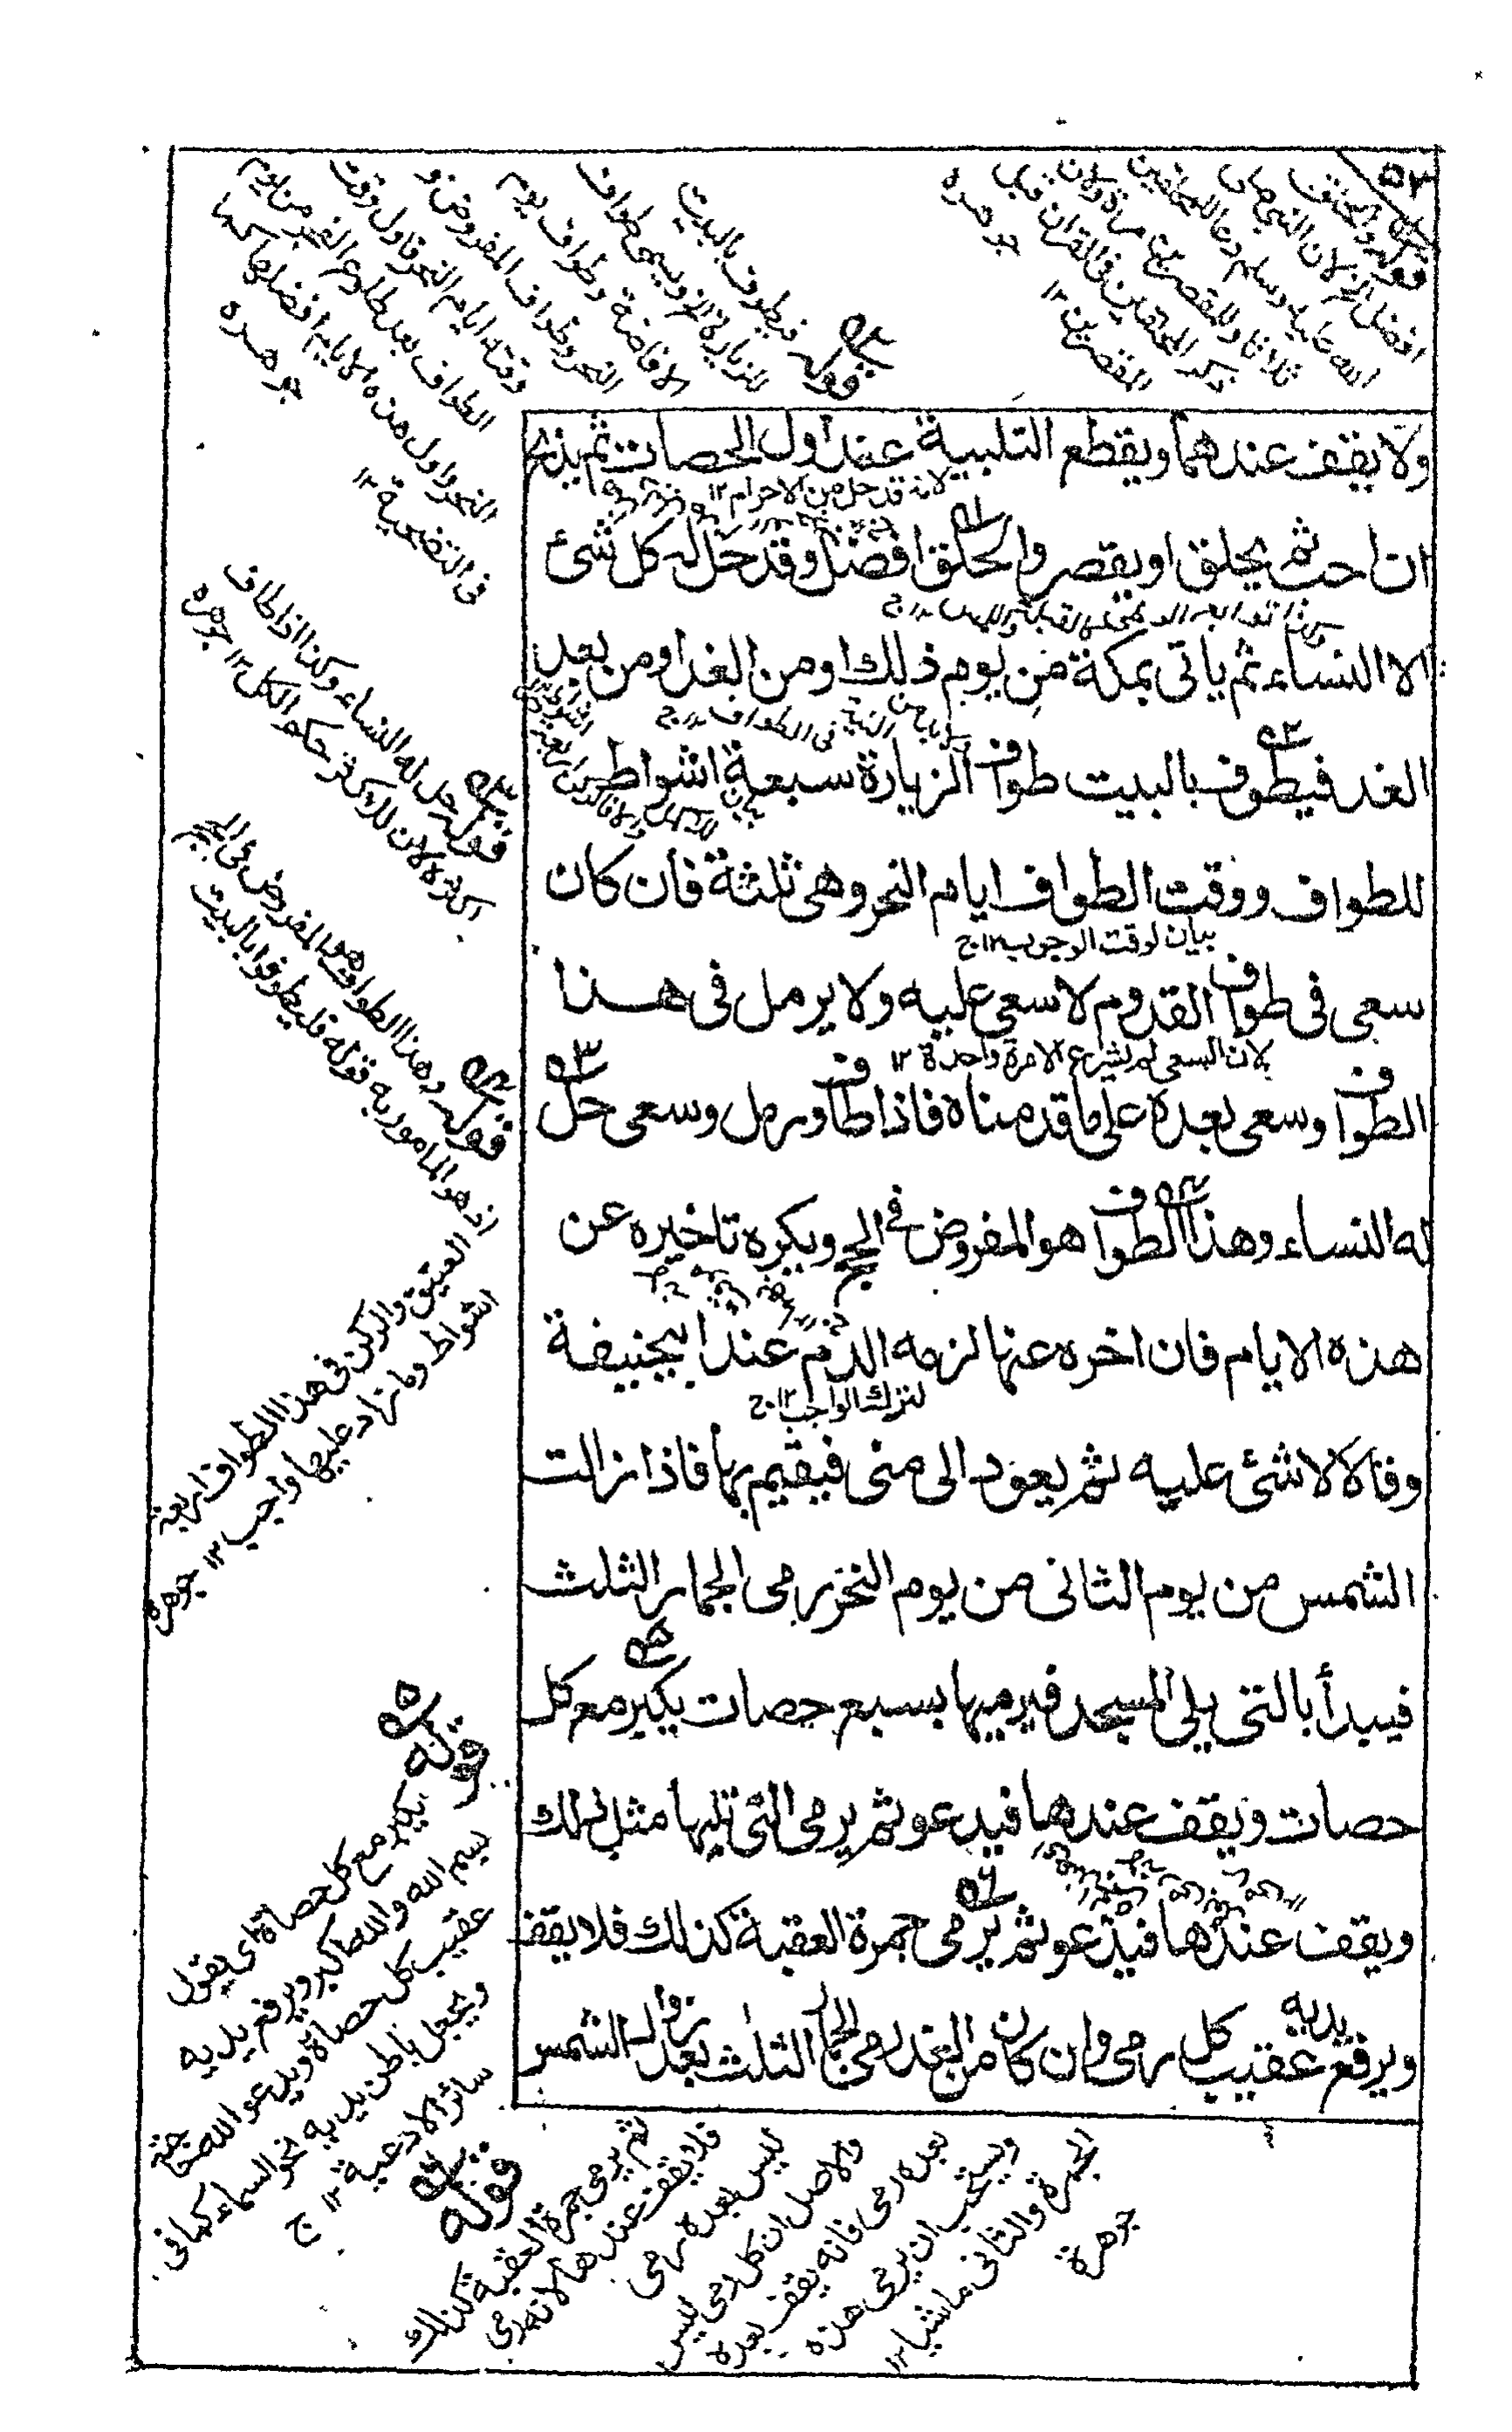 قوله والحلق
افضل لان النبي صلى
الله عليه وسلم دعا للمحلقين
ثلاثا وللمقصرين مرة ولان
ذكر المحلقين في القران قبل
المقصرين ١٢
جوهره
قوله فيطوف بالبيت
للزيارة ويسمى طواف
الافاضة وطواف يوم
النحر وطواف المفروض و
وقته ايام النحر واول وقت
الطواف بعد طلوع الفجر من يوم
النحر واول هذه الايام افضلها كما
في التضحية ١٢
جوهره
ولا يقف عندهما ويقطع التلبية عند اول الحصات ثم يذبح
لانه قد حل من الاحرام ١٢
ان احب ثم يحلق او يقصر والحلق افضل وقد حل له كل شئ
الا النساء ثم ياتى بمكة من يوم ذلك او من الغد او من بعد
الغد فيطوف بالبيت طواف الزيارة سبعة اشواط
للطواف ووقت الطواف ايام النحر وهى ثلثة فان كان
بيان لوقت الوجوب ١٢ ج
سعى فى طواف القدوم لا سعى عليه ولا يرمل فى هذا
لان السعى لم يشرع الا مرة واحدة ١٢
الطواف وسعى بعده على ما قدمناه فاذا طاف ورمل وسعى حل
له النساء وهذا الطواف هو المفروض فى الحج ويكره تاخيره عن
هذه الايام فان اخره عنها لزمه الدم عند ابيحنيفة
لترك الواجب ١٢ ج
وقالا لا شئ عليه ثم يعود الى منى فيقيم بها فاذا زالت
الشمس من يوم الثانى من يوم النحر رمى الجمار الثلث
فيبدأ بالتى يلى المسجد فيرميها بسبع حصات يكبر مع كل
حصات ويقف عندها فيدعو ثم يرمى التى تليها مثل ذلك
ويقف عندها فيدعو ثم يرمى جمرة العقبة كذلك فلا يقف
ويرفع يديه عقيب كل رمى وان كان من الغد رمى الجمار الثلث بعد زوال الشمس
قوله حل له النساء وكذا اذا طاف
اكثره لان للاكثر حكم الكل ١٢ جوهره
قوله وهذا الطواف هو المفروض فى الحج
اذ هو المامور به قوله فليطوفوا بالبيت
العتيق والركن فى هذا الطواف اربعة
اشواط وما زاد عليها واجب ١٢ جوهرة
قوله
يكبر مع كل حصاة اى يقول
بسم الله والله اكبر ويرفع يديه
عقيب كل حصاة ويدعو الله حاجته
ويجعل باطن يديه نحو السماء كما فى
سائر الادعية ١٢ ج
قوله
ثم يرمى جمرة العقبة كذلك
فلا يقف عندها لانه رمى
ليس بعده رمى
والاصل ان كل رمى ليس
بعده رمى فانه يقف بعده
ويستحب ان يرمى هذه
الجمرة والثانى ماشيا ١٢
جوهرة